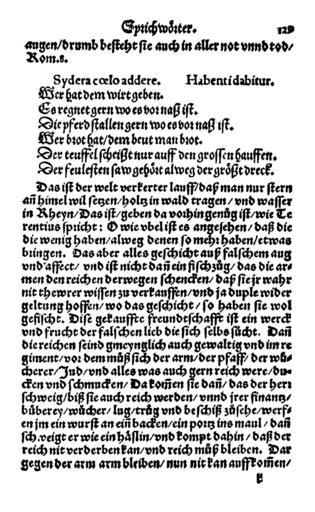 Sprichwörter. 129
augen/drumb besteht sie auch in aller not vnnd tod/
Rom.8.
Sydera cœlo addere. Habenti dabitur.
Wer hat dem wirt geben.
Es regnet gern wo es vor naß ist.
Die pferd stallen gern wo es vor naß ist.
Wer brot hat/dem beut man brot.
Der teuffel scheißt nur auff den grossen hauffen.
Der feulesten saw gehört alweg der größt dreck.
Das ist der welt verkerter lauff/daß man nur stern
an̄ himel wil setzen/holtz in wald tragen/ vnd wasser
in Rheyn/Das ist/geben da vorhin genůg ist/wie Te
rentius spricht: O wie vbel ist es angesehen/ daß die
die wenig haben/alweg denen so mehr haben/etwas
bringen. Das aber alles geschicht auß falschem aug
vnd affect/ vnd ist nicht dan̄ ein fischzüg/ das die ar/
men den reichen derwegen schencken/ daß sie jr wahr
nit thewrer wissen zu verkauffen/vnd ja duple wider
geltung hoffen/ wo das geschicht/ so haben sie wol
gefischt. Dise gekauffte freundtschafft ist ein werck
vnd frucht der falschen lieb die sich selbs sůcht. Dan̄
die reichen seind gmeynglich auch gewaltig vnd im re
giment/vor dem můß sich der arm/der pfaff/ der wů
cherer/Jud/vnd alles was auch gern reich were/du/
cken vnd schmucken/ Da kom̄en sie dan̄/ das der herr
schweig/biß sie auch reich werden/ vnnd jrer finantz/
büberey/wůcher/ lug/trůg vnd beschiß zůsehe/werf/
fen jm ein wurst an ein backen/ein portz ins maul/ dan̄
schweigt er wie ein häslin/vnd kompt dahin/ daß der
reich nit verderben kan/vnd reich můß bleiben. Dar
gegen der arm arm bleiben/nun nit kan auffkom̄en/